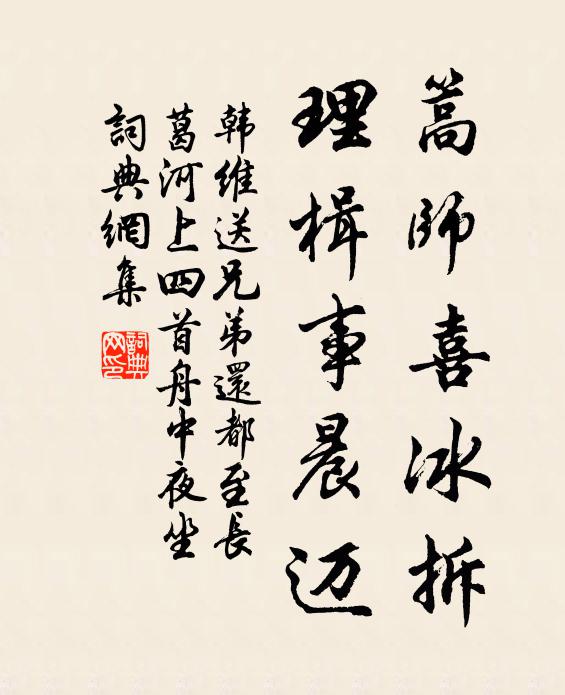 篙師喜冰拆
理楫事晨迈
韩維送兄弟還都至長
葛河上四首舟中夜坐
詞典網集
詞典网印